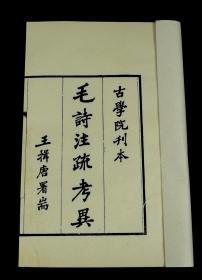 古學院刊本
毛詩注疏考異
王揖唐署耑